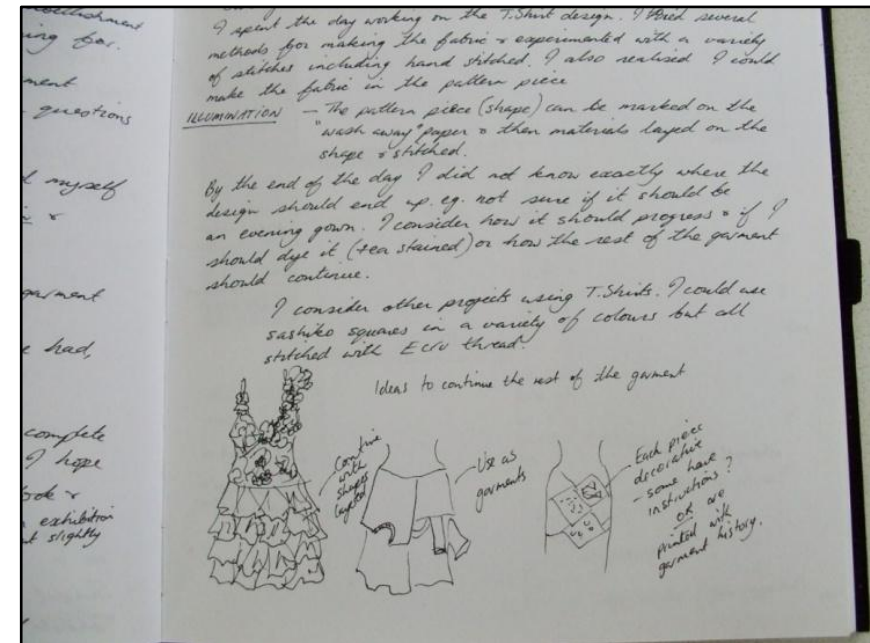 embellishment
ing for.
ment
questions
myself
&
garment
had,
complete
I hope
&
exhibition
slightly
I spent the day working on the T.Shirt design. I tried several
methods for making the fabric & experimented with a variety
of stitches including hand stitched. I also realised I could
make the fabric in the pattern piece
ILLUMINATION – The pattern piece (shape) can be marked on the
"wash away" paper & then materials layed on the
shape & stitched.
By the end of the day I did not know exactly where the
design should end up. eg. not sure if it should be
an evening gown. I consider how it should progress & if I
should dye it (tea stained) or how the rest of the garment
should continue.
I consider other projects using T.Shirts. I could use
sashiko squares in a variety of colours but all
stitched with Ecru thread.
Ideas to continue the rest of the garment
Continue
with
shapes
layered
Use as
garments
Each piece
decorative
– some have
instructions?
OR are
printed with
garment history.